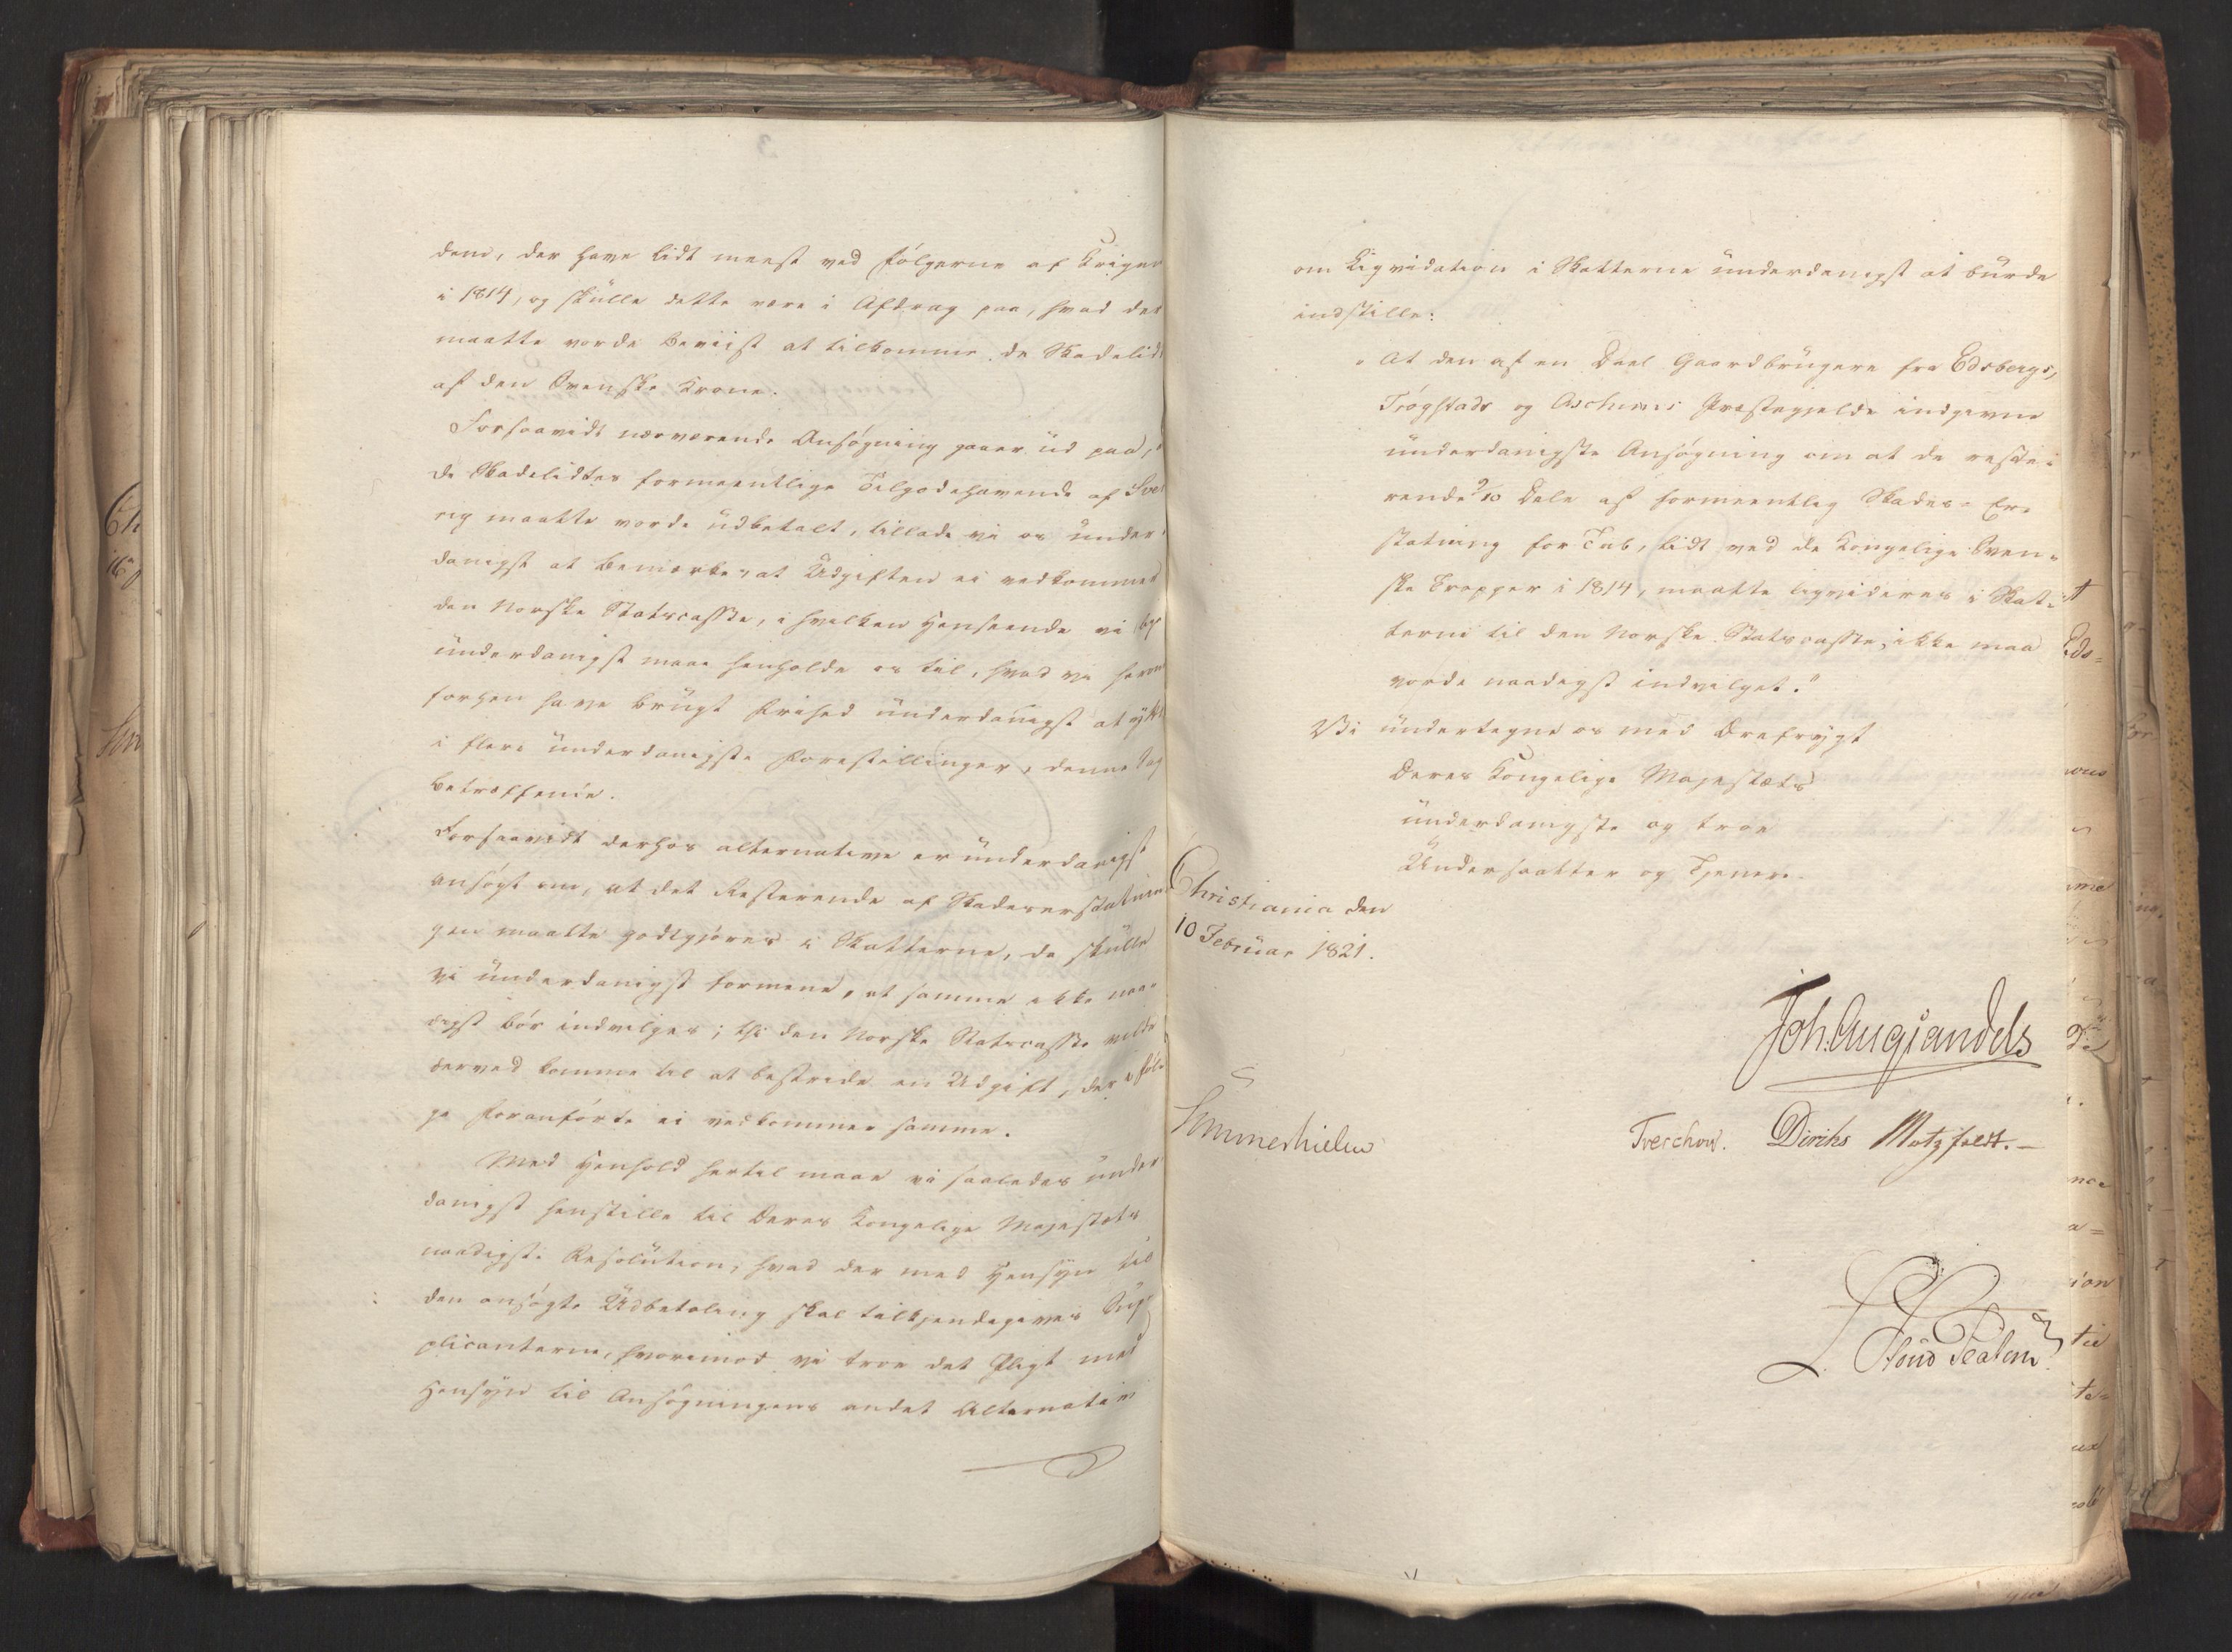 dem, der have lidt meest ved Følgerne af Krigen
i 1814, og skulle dette være i Afdrag paa, hvad der
maatte vorde beviist at tilkomme de Skadelidte
af den Svenske Krone.
Forsaavidt nærværende Ansøgning gaaer ud paa, at
de Skadelidtes formeentlige Tilgodehavende af Sver
rig maatte vorde udbetalt, tillade vi os under
danigst at bemærke, at Udgiften ei vedkommer
den Norske Statscasse, i hvilken Henseende vi
underdanigst maae henholde os til, hvad vi
forhen have brugt Frihed underdanigst at yttre
i flere underdanigste Forestillinger, denne Sag
betræffende.
Forsaavidt derhos alternative er underdanigst
ansøgt om, at det Resterende af Skadeserstatnin
gen maatte godtgjøres i Skatterne, da skulle
vi underdanigst formene, at samme ikke naa-
digst bør indvilges; thi den Norske Statscasse vilde
derved komme til at bestride en Udgift, der i føl-
ge Foranførte ei vedkommer samme.
Med Henhold hertil maae vi saaledes under
danigst henstille til Deres Kongelige Majestæts
naadigste Resolution, hvad der med Hensyn til
den ansøgte Udbetaling skal tilkjendegives Sup
plicanterne, hvorimod vi troe det Pligt med
Hensyn til Ansøgningens andet Alternativ
om Liqvidation i Skatterne underdanigst at burde
indstille:
"At den af en Deel Gaardbrugere fra Edsbergs,
Trøgstads og Aschims Præstegjelde indgivne
underdanigste Ansøgning om at de reste-
rende 9/10 Dele af formeentlig Skades-Er-
statning for Tab, lidt ved de Kongelige Sven-
ske Tropper i 1814, maatte liqvideres i Skat-
terne til den Norske Statscasse, ikke maa
vorde naadigst indvilget."
Vi undertegne os med Ærefrygt
Deres Kongelige Majestæts
underdanigste og troe
Undersaatter og Tjenere.
Christiania den
10 Februar 1821.
Joh. Aug. Sandels
Sommerhielm Treschow. Diriks Motzfeldt.-